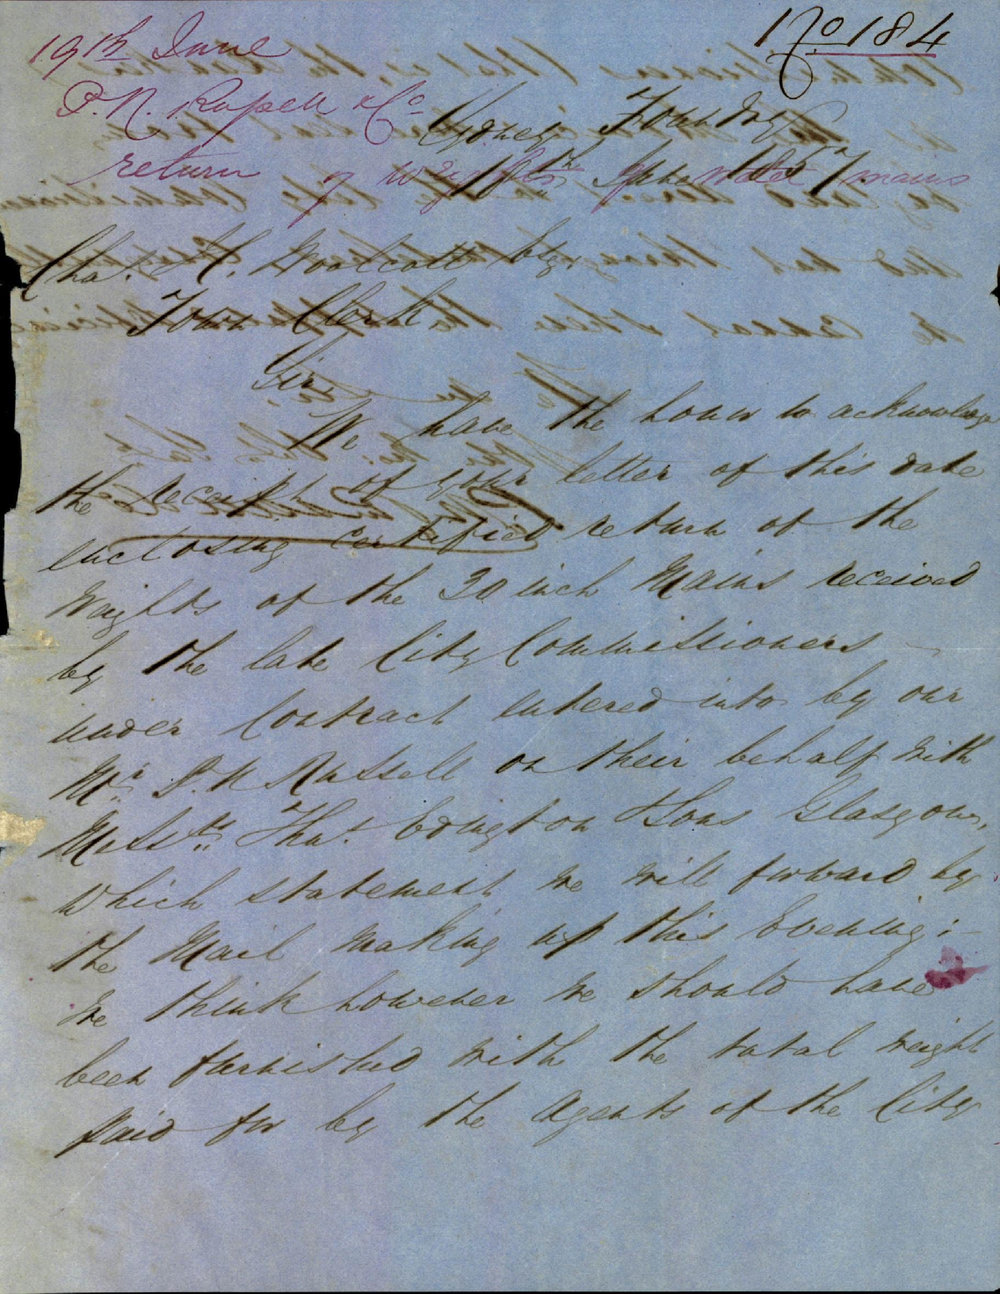 No 184
19th June
P. N. Russell & Co
return of weights of water mains
Sydney Foundry
Chas. H. Woolcott Esq.
Town Clerk
Sir,
We have the honor to acknowledge
the receipt of your letter of this date
enclosing certified return of the
Weights of the 30 inch Mains received
by the late City Commissioners
under Contract entered into by our
Mr. P. N. Russell on their behalf with
Messrs. Thos. Edington & Sons Glasgow,
which statement we will forward by
the Mail making up this Evening; –
We think however we should have
been furnished with the total weight
paid for by the Agents of the City